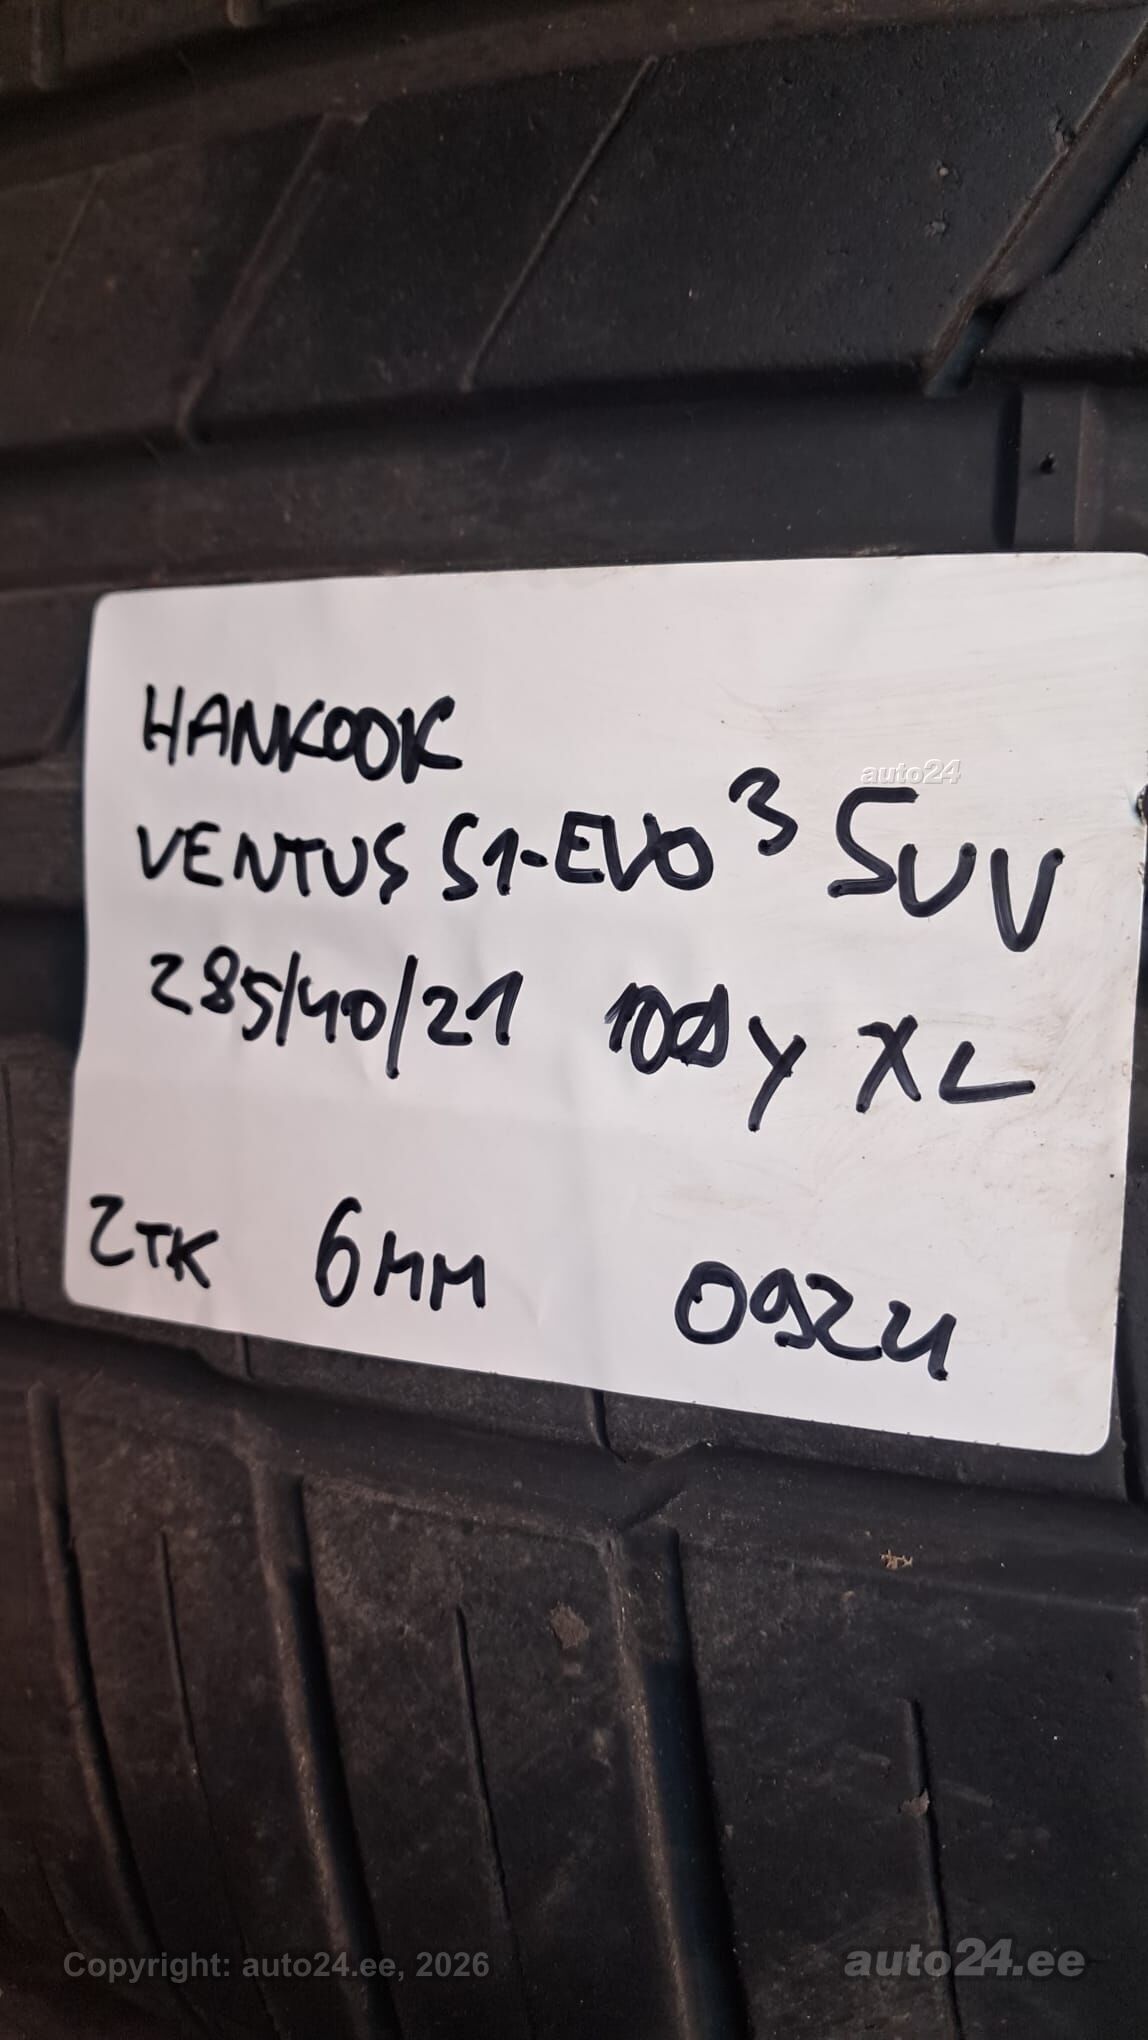 HANKOOK
auto24
VENTUS S1-EVO³ SUV
285/40/21 109Y XL
2TK 6MM 0924
Copyright: auto24.ee, 2026
auto24.ee